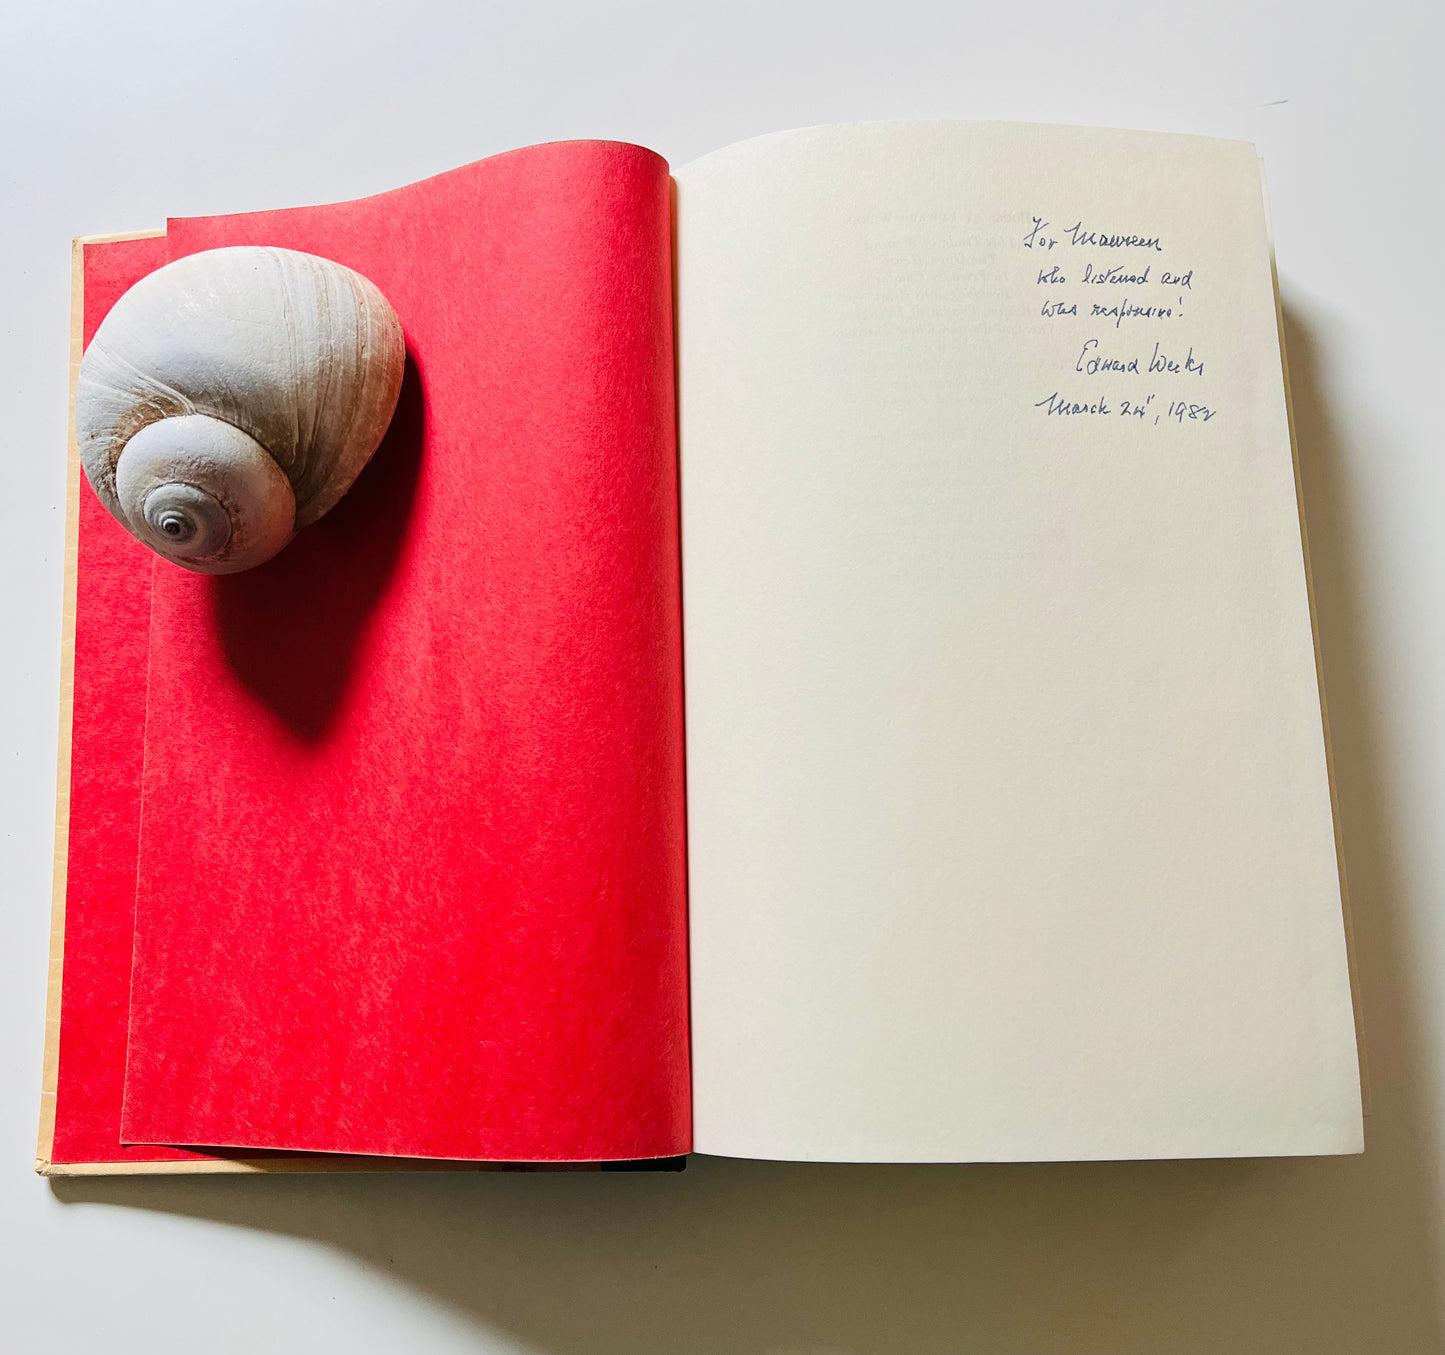 For Maureen
who listened and
was responsive!
Edward Weeks
March 24", 1982